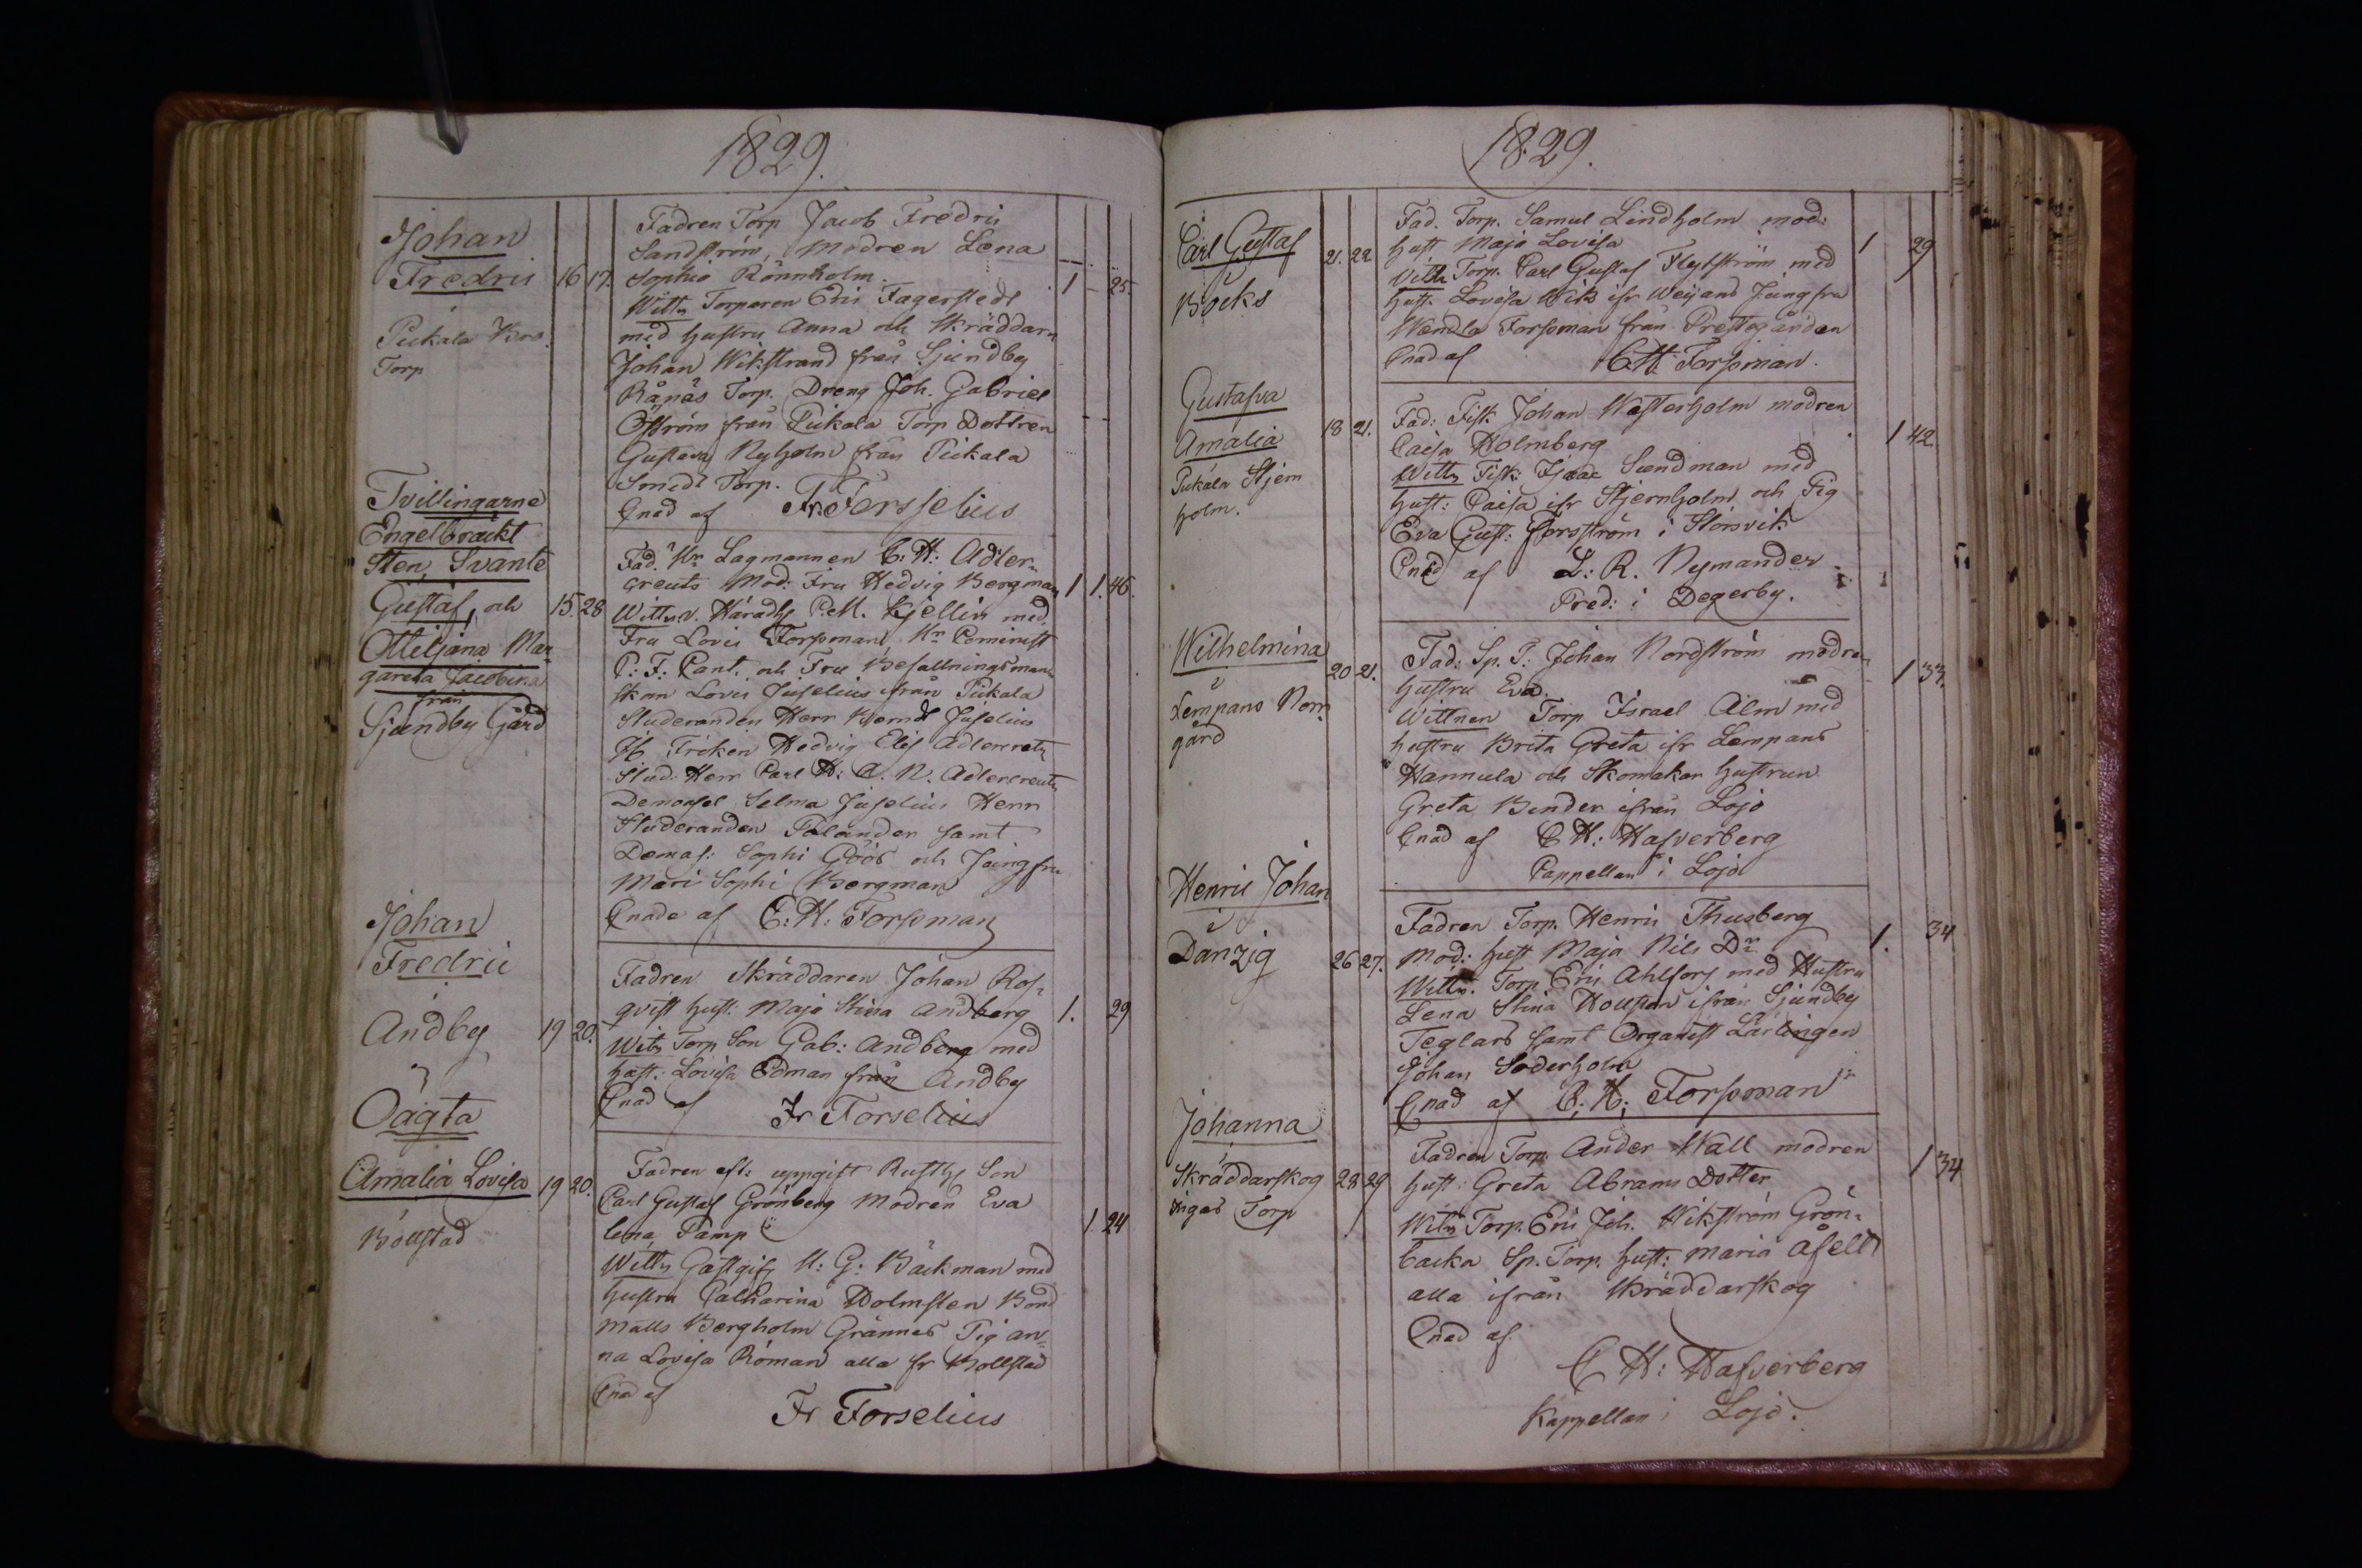 1829.
Johan
Fredric 16 17.
Pickala Kro
Torp
Fadren Torp Jacob Fredric
Sandström, Modren Lena
Sophia Rönnholm. 1 25.
Wittn Torparen Eric Fagerstedt
med hustru Anna och Skräddarn
Johan Wikstrand från Sjundby
Rånäs Torp. Dreng Joh. Gabriel
Öström från Pickala Torp Dottren
Gustava Nyholm från Pickala
Smeds Torp.
Cnad af Fr. Forsselius
Tvillingarne
Engelbräckt
Sten, Svante
Gustaf, och 15. 28
Ottiljana Mar
gareta Jacobina
från
Sjundby Gård
Fad. Hr Lagmannen C. H: Adler-
creutz Mod: Fru Hedvig Bergman 1 1. 46.
Wittn. v. Häradsh C. M. Kjellin med
Fru Lovis Forssman, Hr Cominist
C: F: Cant. och Fru Befallningsman
skan Lovis Juselius ifrån Pickala
Studeranden Herr Berndt Juselius
Fröken Hedvig Elis Adlercretz
Stud: Herr Carl H: A. N. Adlercreutz
Demoisel Selma Juselius Herr
Studeranden Tälander samt
Demos: Sophi Göös och Jungfru
Mari Sophi Bergman
Cnade af C: H: Forssman
Johan
Fredric
Andby 19 20.
Fadren Skräddaren Johan Ros-
qvist hust: Maja Stina Andberg 1. 29
Witn Torp Son Gab: Andberg med
hust: Lovisa Edman från Andby
Cnad af Fr Forselius
Oägta
Amalia Lovisa 19 20.
Böllstad
Fadren eft: uppgift Rusth Son
Carl Gustaf Grönberg Modren Eva
Lena Pamp 1 24
Wittn Gästgifv M: G: Bäckman med
hustru Catharina Holmsten Bond
Matts Bergholm Grännes Pig An-
na Lovisa Röman alla fr Bollstad
Cnad af
Fr Forselius
1829.
Carl Gustaf 21. 22.
Böcks
Fad. Torp. Samuel Lindholm mod:
hust Maja Lovisa 1 29
Vittn Torp. Carl Gustaf Flytström med
hust. Lovisa Wik ifr Weijans Jungfru
Wendla Forssman från Prestgården
Cnad af C H: Forssman.
Gustafva
Amalia 18 21.
Pickala Stjern
holm.
Fad: Fisk Johan Westerholm modren
Caisa Holmberg 1 42.
Wittn Fisk Isaac Sundman med
hust: Caisa ifr Stjernholm och Pig
Eva Gust: Forsström i Störsvik
Cnad af L: R. Nymander
Pred: i Degerby.
Wilhelmina
i 20 21.
Lempans Norr
gård
Fad: Sp. T: Johan Nordström modren
hustru Eva. 1 33.
Wittnen Torp Israel Alm med
hustru Brita Greta ifr Lempans
Hannula och Skomakar hustrun
Greta Binder ifrån Lojo
Cnad af C H: Hafverberg
Cappellan i Lojo
Henric Johan
i
Danzig 26 27.
Fadren Torp. Henric Thusberg 1. 34
Mod: hust Maja Nils Dr
Wittn. Torp Eric Ahlfors med Hustru
Lena Stina Holsten ifrån Sjundby
Teglars samt Organist Lärlingen
Johan Söderholm
Cnad af C: H: Forssman
Johanna
Skräddarskog 28 29
Torp
Fadren Torp. Ander Wall modren
hust: Greta Abrams Dotter 1 34
Witn Torp. Eric Joh. Wikström Grön-
backa Sp. Torp. hust: Maria Asell
alla ifrån Skräddarskog
Cnad af.
C H: Hafverberg
Kappellan i Lojo.